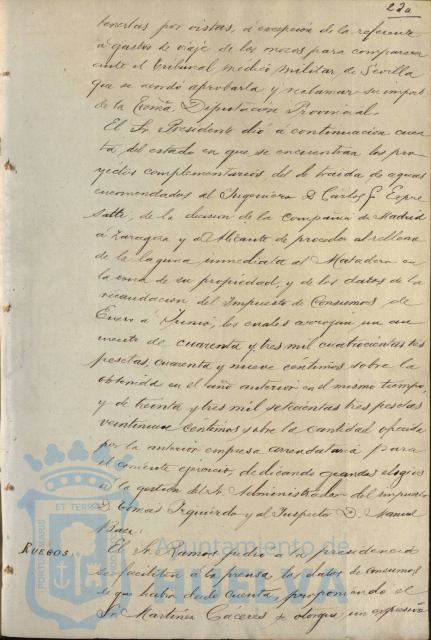 tenerlas por vistas, á excepción de la referente
á gastos de viaje de los mozos para comparecer
ante el Tribunal médico militar de Sevilla
que se acordó aprobarla y reclamar su importe
de la Excma. Diputación Provincial.
El Sr. Presidente dió á continuación cuen
ta del estado en que se encuentran los pro
yectos complementarios del de traida de aguas
encomendados al Ingeniero D. Carlos
de la decision de la Compañia de Madrid
á Zaragoza y á Alicante de proceder al relleno
de la laguna inmediata al Matadero en
la zona de su propiedad, y de los datos de la
recaudación del Impuesto de Consumos de
Enero á Junio, los cuales arrojan un au
mento de cuarenta y tres mil cuatrocientas tres
pesetas, cuarenta y nueve céntimos sobre la
obtenida en el año anterior en el mismo tiempo,
y de treinta y tres mil setecientas tres pesetas
veintinueve céntimos sobre la cantidad ofrecida
por la anterior empresa arrendataria para
el corriente ejercicio, dedicando grandes elogios
á la gestión del Sr. Administrador del impuesto
D. Tomás Izquierdo y al Inspector D. Manuel
Baez.
RUEGOS.
El Sr. Ramos pidió á la presidencia
se faciliten á la prensa los datos de consumos
de que habia dado cuenta, proponiendo el
Sr. Martinez Cáceres se otorgue un expresivo
Ayuntamiento de
HUELVA
PORTUS MARIS ET TERRAE CUSTODIA